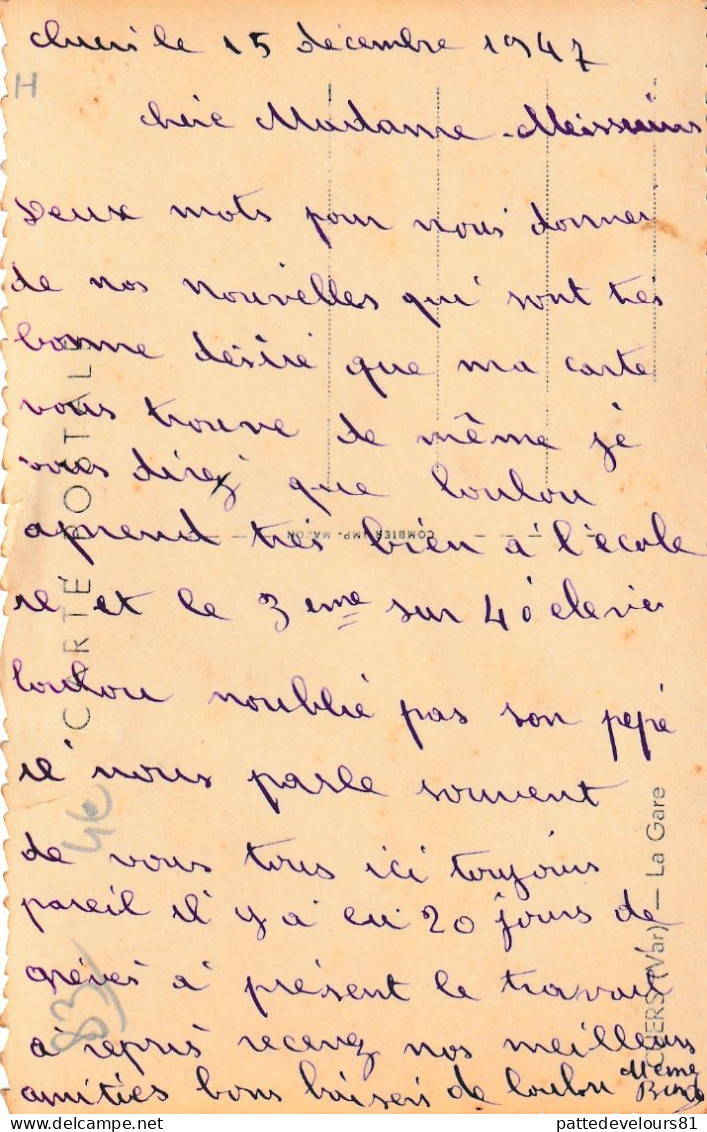 Cuers le 15 décembre 1947
H
chere Madame Meissuins
Deux mots pour nous donner
de nos nouvelles qui sont très
bonne désiré que ma carte
vous trouve de même je
vous direz que loulou
aprend très bien a l'école
il et le 3 eme sur 40 elevier
loulou noublié pas son pepé
il nous parle souvent
de vous tous ici toujours
pareil il y a eu 20 jours de
greves a présent le travail
a repris recevez nos meilleurs
amitiés bons baisers de loulou Meme
CARTE POSTALE
COMBIER IMP. MACON
CUERS (Var) — La Gare
4€
83
pattedevelours81